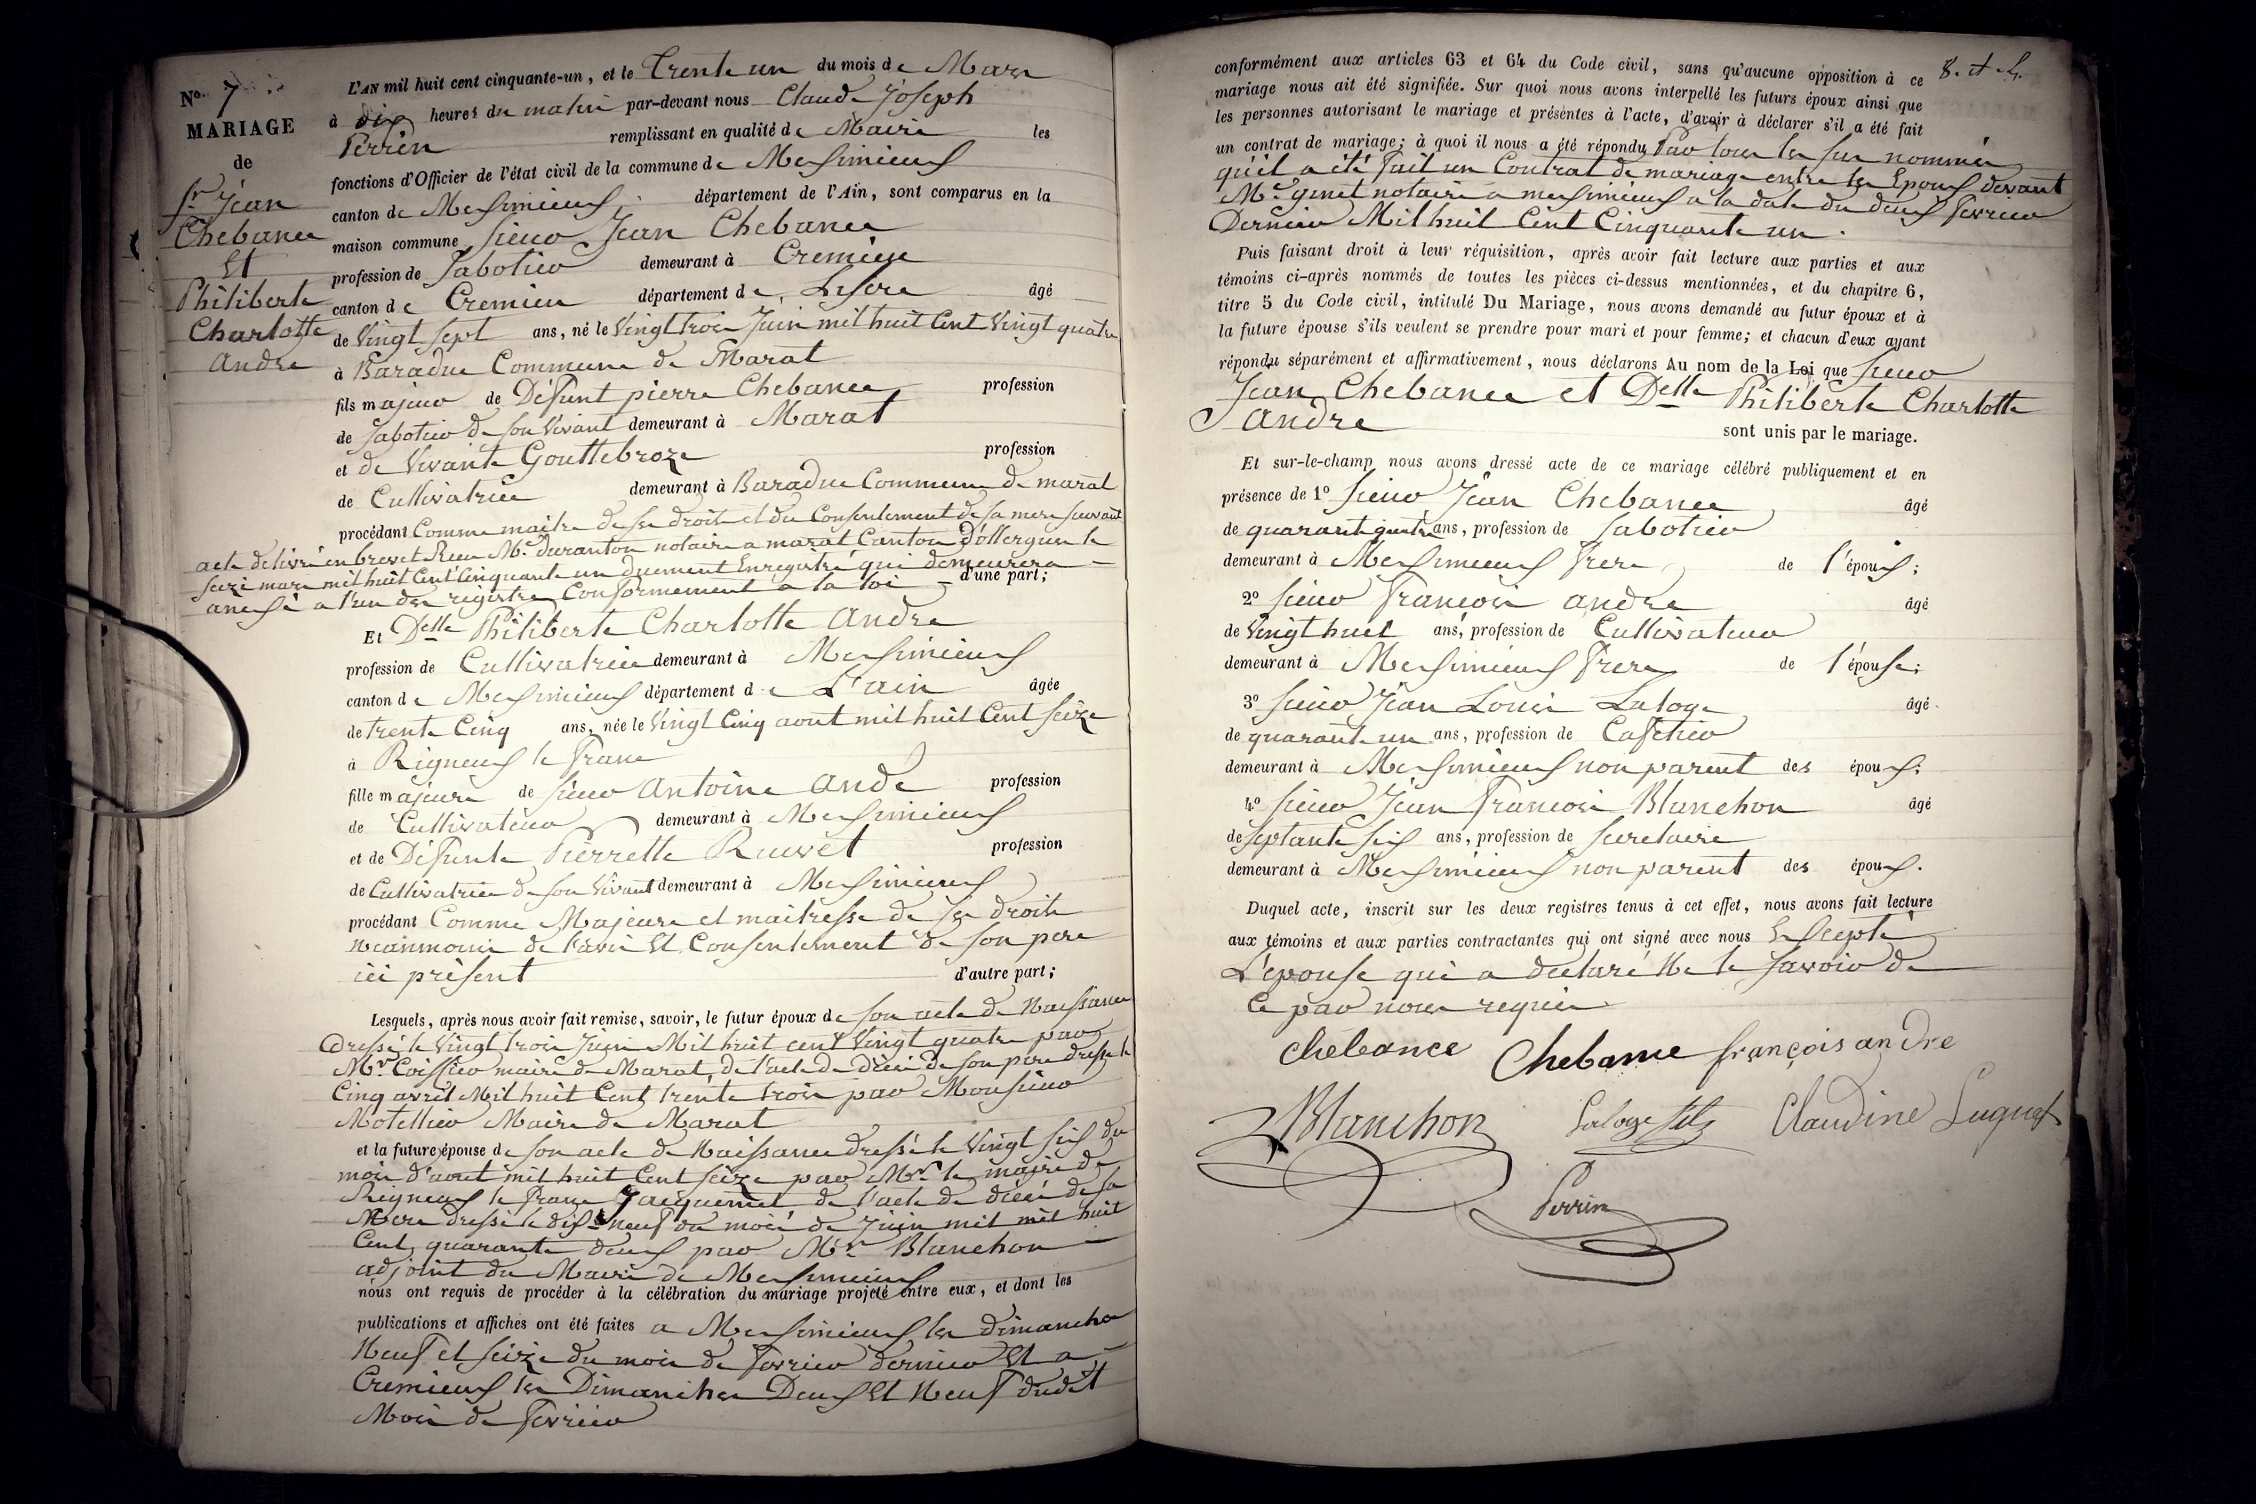 No. 7
MARIAGE
de
Sr Jean
Chebance
Et
Philiberte
Charlotte
andre
L'AN mil huit cent cinquante-un, et le Trente un du mois de Mars
à dix heures du matin par-devant nous Claude Joseph
Perrin remplissant en qualité de Maire les
fonctions d'Officier de l'état civil de la commune de Meximieux
canton de Meximieux département de l'Ain, sont comparus en la
maison commune Sieur Jean Chebance
profession de Sabotier demeurant à Cremieu
canton de Cremieu département de Lisere âgé
de Vingt Sept ans, né le Vingt trois Juin mil huit Cent Vingt quatre
à Baraduc Commune de Marat
fils majeur de Défunt pierre Chebance profession
de Sabotier de son Vivant demeurant à Marat
et de Vivante Gouttebroze profession
de Cultivatrice demeurant à Baraduc Commune de marat
procédant Comme maitre de ses droits et du Consentement de sa mere suivant
acte delivré en brevet Reçu Mr. Duranton notaire a marat Canton D'ollergues le
seize mars mil huit Cent Cinquante un Duement Enregistré qui demeurera
anexé a l'un des registres Conformement a la loi d'une part;
Et Delle Philiberte Charlotte Andre
profession de Cultivatrice demeurant à Meximieux
canton de Meximieux département de L'ain âgée
de trente Cinq ans, née le Vingt Cinq aout mil huit Cent Seize
à Rigneux le Franc
fille majeure de Sieur Antoine Andé profession
de Cultivateur demeurant à Meximieux
et de Défunte Pierrette Ruivet profession
de Cultivatrice de son Vivant demeurant à Meximieux
procédant Comme Majeure et maitresse de ses droits
neanmoins de l'avis Et Consentement de son pere
ici présent d'autre part;
Lesquels, après nous avoir fait remise, savoir, le futur époux de son acte de Naissance
dressé le Vingt trois Juin Mil huit cent Vingt quatre par
Mr Coissier maire de Marat, de l'acte de décès de son pere dressé le
Cinq avril Mil huit Cent trente trois par Monsieur
Motellier Maire de Marat
et la future épouse de son acte de Naissance dressé le Vingt six du
mois d'aout mil huit Cent seize par Mr le maire de
Rigneux le franc Jacquemet de l'acte de décès de sa
Mere dressé le dix neuf du mois de Juin mil mil huit
Cent quarante deux par Mr Blanchon
adjoint du Maire de Meximieux
nous ont requis de procéder à la célébration du mariage projeté entre eux, et dont les
publications et affiches ont été faites a Meximieux les dimanches
Neuf et seize du mois de Fevrier dernier Et a
Cremieux les Dimanches Deux Et Neuf dudit
Mois de Fevrier
8. et 4.
conformément aux articles 63 et 64 du Code civil, sans qu'aucune opposition à ce
mariage nous ait été signifiée. Sur quoi nous avons interpellé les futurs époux ainsi que
les personnes autorisant le mariage et présentes à l'acte, d'avoir à déclarer s'il a été fait
un contrat de mariage; à quoi il nous a été répondu Par tous les sus nommés
qu'il a été fait un Contrat de mariage entre les Epoux devant
Me. genet notaire a meximieux a la date du deux Fevrier
Dernier Mil huit Cent Cinquante un.
Puis faisant droit à leur réquisition, après avoir fait lecture aux parties et aux
témoins ci-après nommés de toutes les pièces ci-dessus mentionnées, et du chapitre 6,
titre 5 du Code civil, intitulé Du Mariage, nous avons demandé au futur époux et à
la future épouse s'ils veulent se prendre pour mari et pour femme; et chacun d'eux ayant
répondu séparément et affirmativement, nous déclarons Au nom de la Loi que Sieur
Jean Chebance et Delle Philiberte Charlotte
andre sont unis par le mariage.
Et sur-le-champ nous avons dressé acte de ce mariage célébré publiquement et en
présence de 1o Sieur Jean Chebance âgé
de quarante quatre ans, profession de Sabotier
demeurant à Meximieux Frere de l'époux;
2o Sieur Francois andre âgé
de Vingt huit ans, profession de Cultivateur
demeurant à Meximieux Frere de l'épouse;
3o Sieur Jean Louis Laloge âgé
de quarante un ans, profession de Cafetier
demeurant à Meximieux non parent des époux;
4o Sieur Jean Francois Blanchon âgé
de septante six ans, profession de Secretaire
demeurant à Meximieux non parent des époux.
Duquel acte, inscrit sur les deux registres tenus à cet effet, nous avons fait lecture
aux témoins et aux parties contractantes qui ont signé avec nous Excepté
L'epouse qui a declaré Ne le savoir de
ce par nous requis
chebance Chebance françois andre
Blanchon Laloge fils Claudine Luquet
Perrin